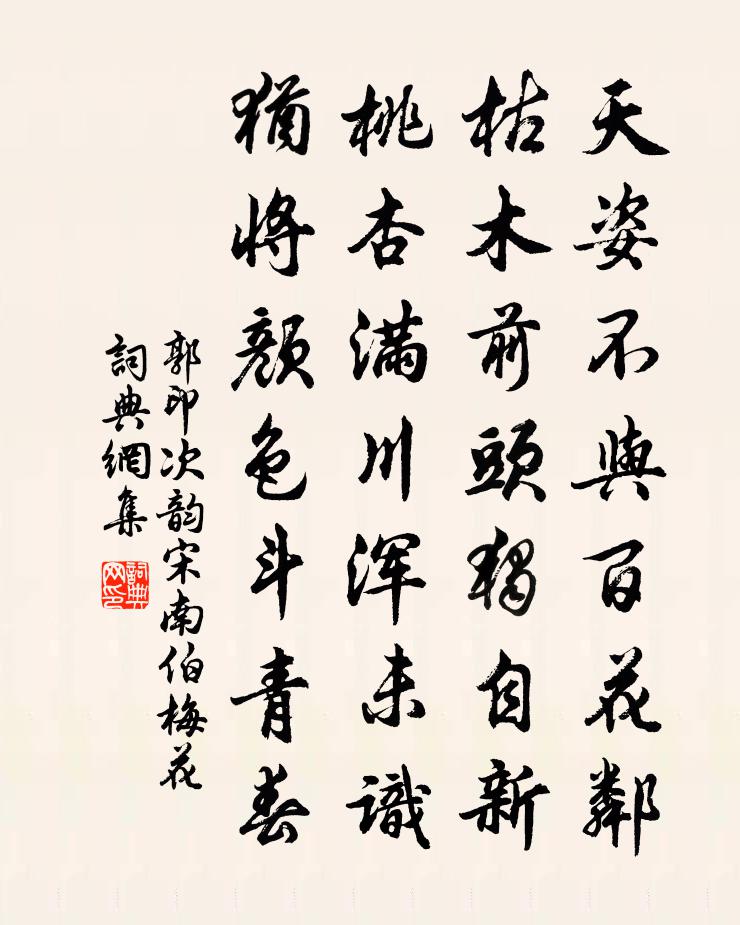 天姿不與百花鄰
枯木前頭獨自新
桃杏滿川渾未識
猶將顏色斗青春
郭印次韵宋南伯梅花
詞典網集
詞典网印